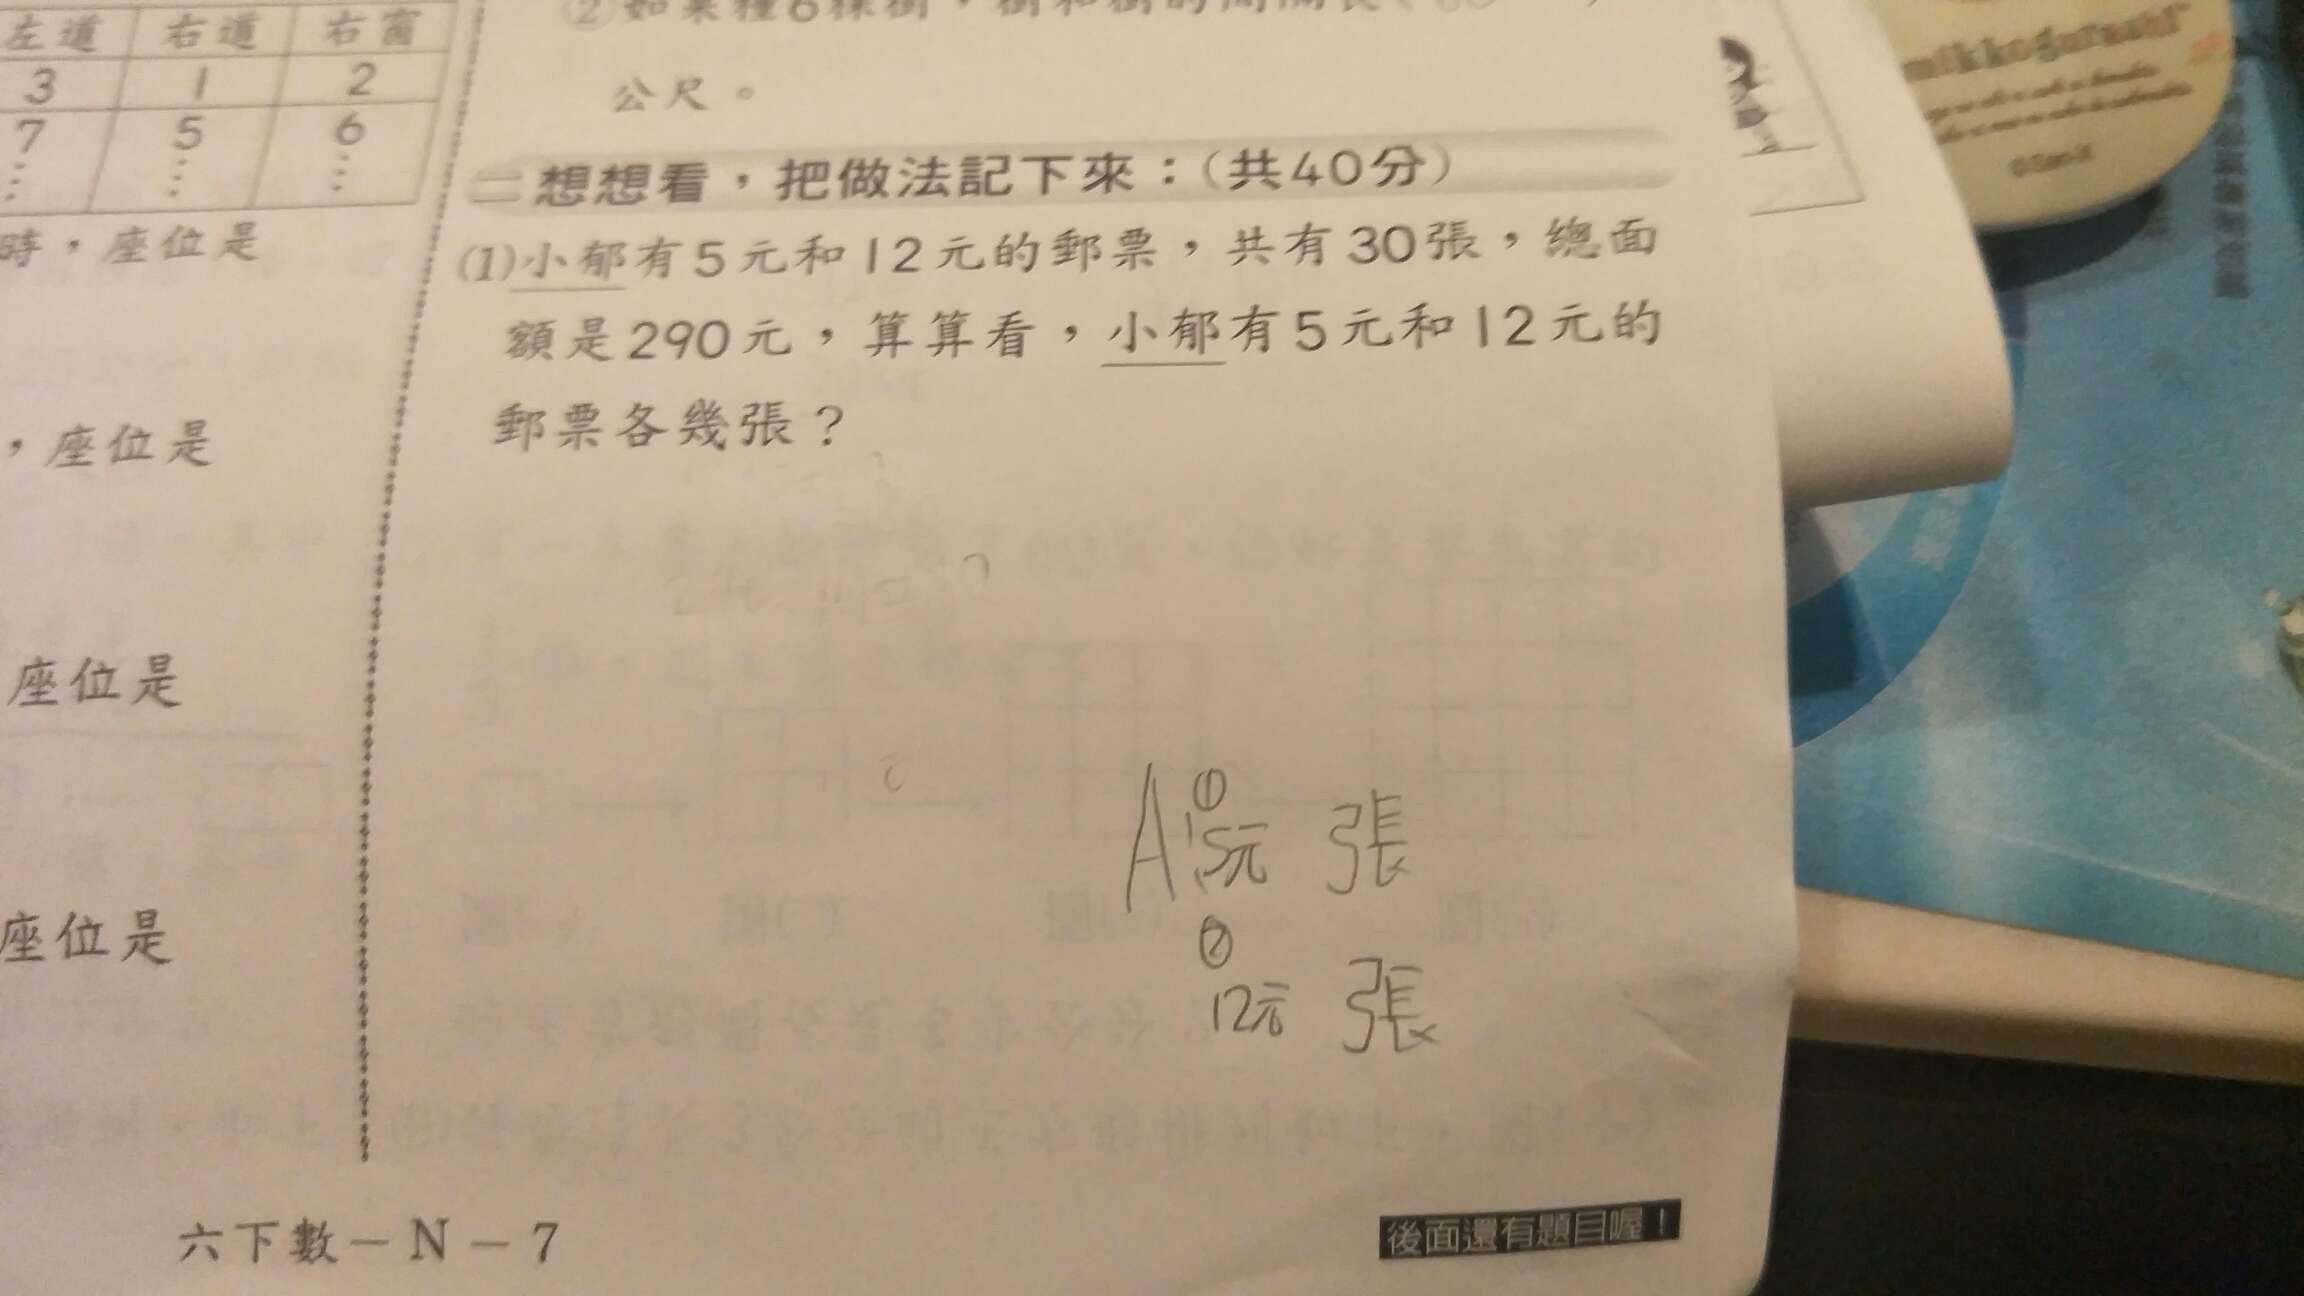 左道 右道 右窗
3 1 2
7 5 6
⋮ ⋮ ⋮
時，座位是
，座位是
座位是
座位是
②如果種6棵樹，樹和樹的間隔長
公尺。
二 想想看，把做法記下來：(共40分)
(1)小郁有5元和12元的郵票，共有30張，總面
額是290元，算算看，小郁有5元和12元的
郵票各幾張？
A ①
5元 張
②
12元 張
六下數－N－7
後面還有題目喔！
mikkogurashi